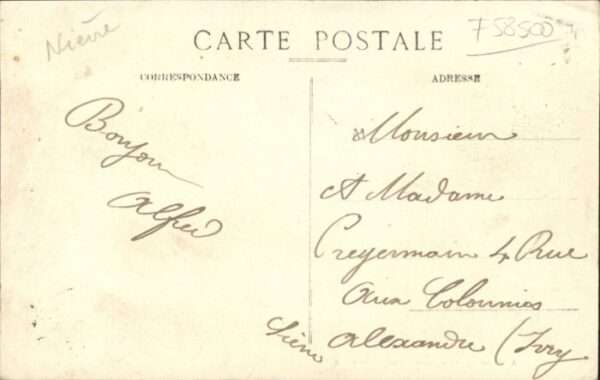 Nièvre
758500
CARTE POSTALE
CORRESPONDANCE
ADRESSE
Bonjour
Alfred
Monsieur
et Madame
Preyermain 4 Rue
Aux Colonnies
Alexandre (Ivry
Seine